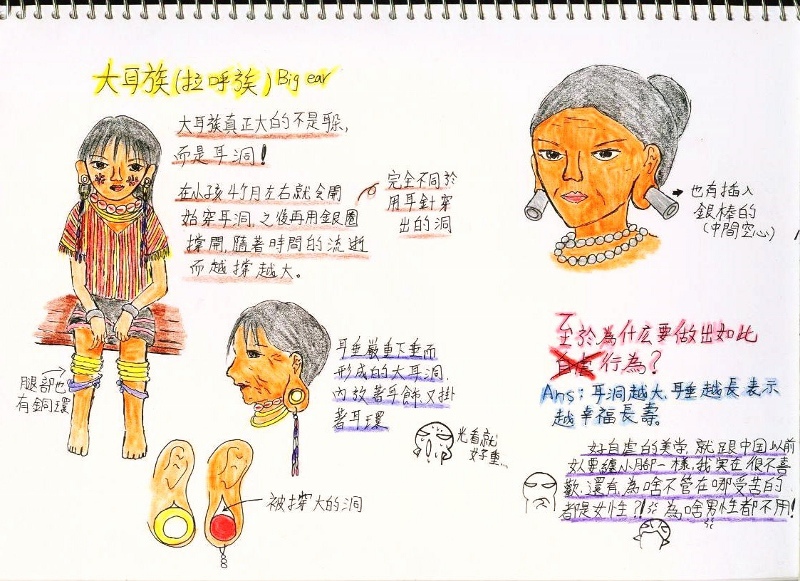 大耳族(拉呼族)Big ear
大耳族真正大的不是耳朵,
而是耳洞!
在小孩4個月左右就會開
始穿耳洞,之後再用銀圈
撐開,隨著時間的流逝
而越撐越大。
完全不同於
用耳針穿
出的洞
也有插入
銀棒的
(中間空心)
腿部也
有銅環
耳垂嚴重下垂而
形成的大耳洞,
內放著手飾又掛
著耳環
光看就
好重...
被撐大的洞
至於為什麼要做出如此
自虐行為?
Ans:耳洞越大,耳垂越長表示
越幸福長壽。
好自虐的美学,就跟中国以前
女人要纏小腳一樣,我実在很不喜
歡,還有,為啥不管在哪受苦的
都是女性?!為啥男性都不用!